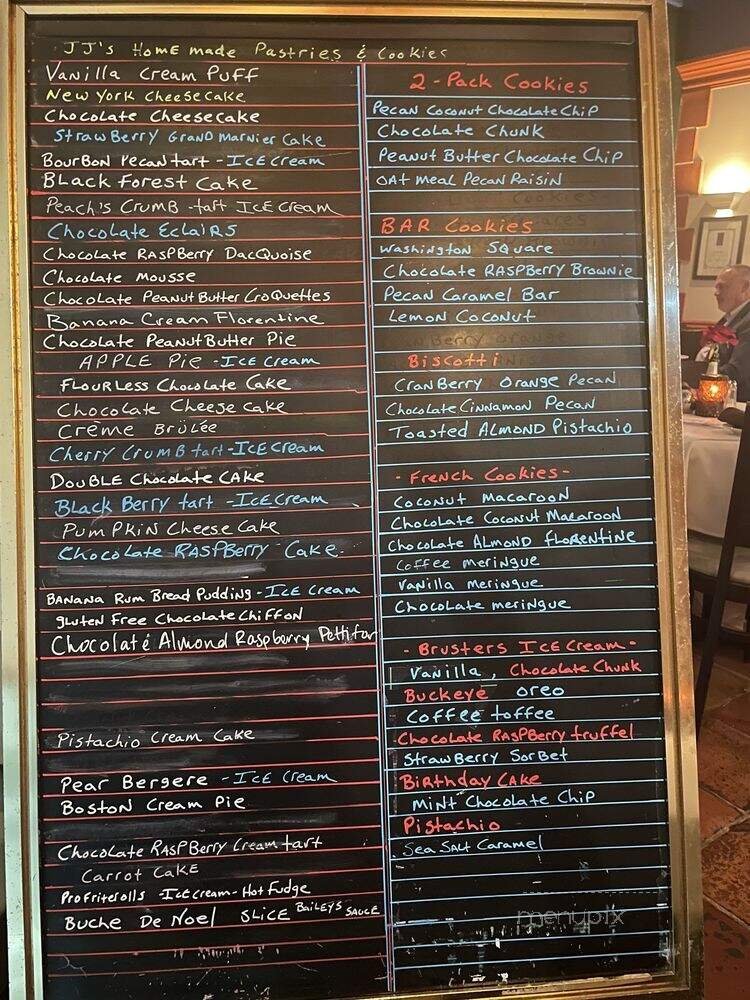 JJ's Home made Pastries & Cookies
Vanilla Cream Puff
New York Cheesecake
Chocolate Cheesecake
StrawBerry Grand Marnier Cake
Bourbon Pecan tart - Ice Cream
Black Forest Cake
Peach's Crumb -tart Ice Cream
Chocolate Eclairs
Chocolate Raspberry Dacquoise
Chocolate Mousse
Chocolate Peanut Butter Croquettes
Banana Cream Florentine
Chocolate Peanut Butter Pie
Apple Pie - Ice Cream
Flourless Chocolate Cake
Chocolate Cheese Cake
Créme Brûlée
Cherry Crumb tart - Ice Cream
Double Chocolate Cake
Black Berry tart - Ice Cream
Pumpkin Cheese Cake
Chocolate Raspberry Cake
Banana Rum Bread Pudding - Ice Cream
gluten Free Chocolate Chiffon
Chocolaté Almond Raspberry Pettifor
Pistachio Cream Cake
Pear Bergere - Ice Cream
Boston Cream Pie
Chocolate Raspberry Cream tart
Carrot Cake
Profriterolls - Ice cream - Hot Fudge
Buche De Noel Slice Baileys Sauce
2 - Pack Cookies
Pecan Coconut Chocolate Chip
Chocolate Chunk
Peanut Butter Chocolate Chip
Oat meal Pecan Raisin
Bar Cookies
Washington Square
Chocolate Raspberry Brownie
Pecan Caramel Bar
Lemon Coconut
Biscotti
CranBerry Orange Pecan
Chocolate Cinnamon Pecan
Toasted Almond Pistachio
- French Cookies -
Coconut Macaroon
Chocolate Coconut Macaroon
Chocolate Almond Florentine
Coffee meringue
Vanilla meringue
Chocolate meringue
- Brusters Ice Cream -
Vanilla, Chocolate Chunk
Buckeye Oreo
Coffee toffee
Chocolate Raspberry truffel
StrawBerry Sorbet
Birthday Cake
Mint Chocolate Chip
Pistachio
Sea Salt Caramel
menupix